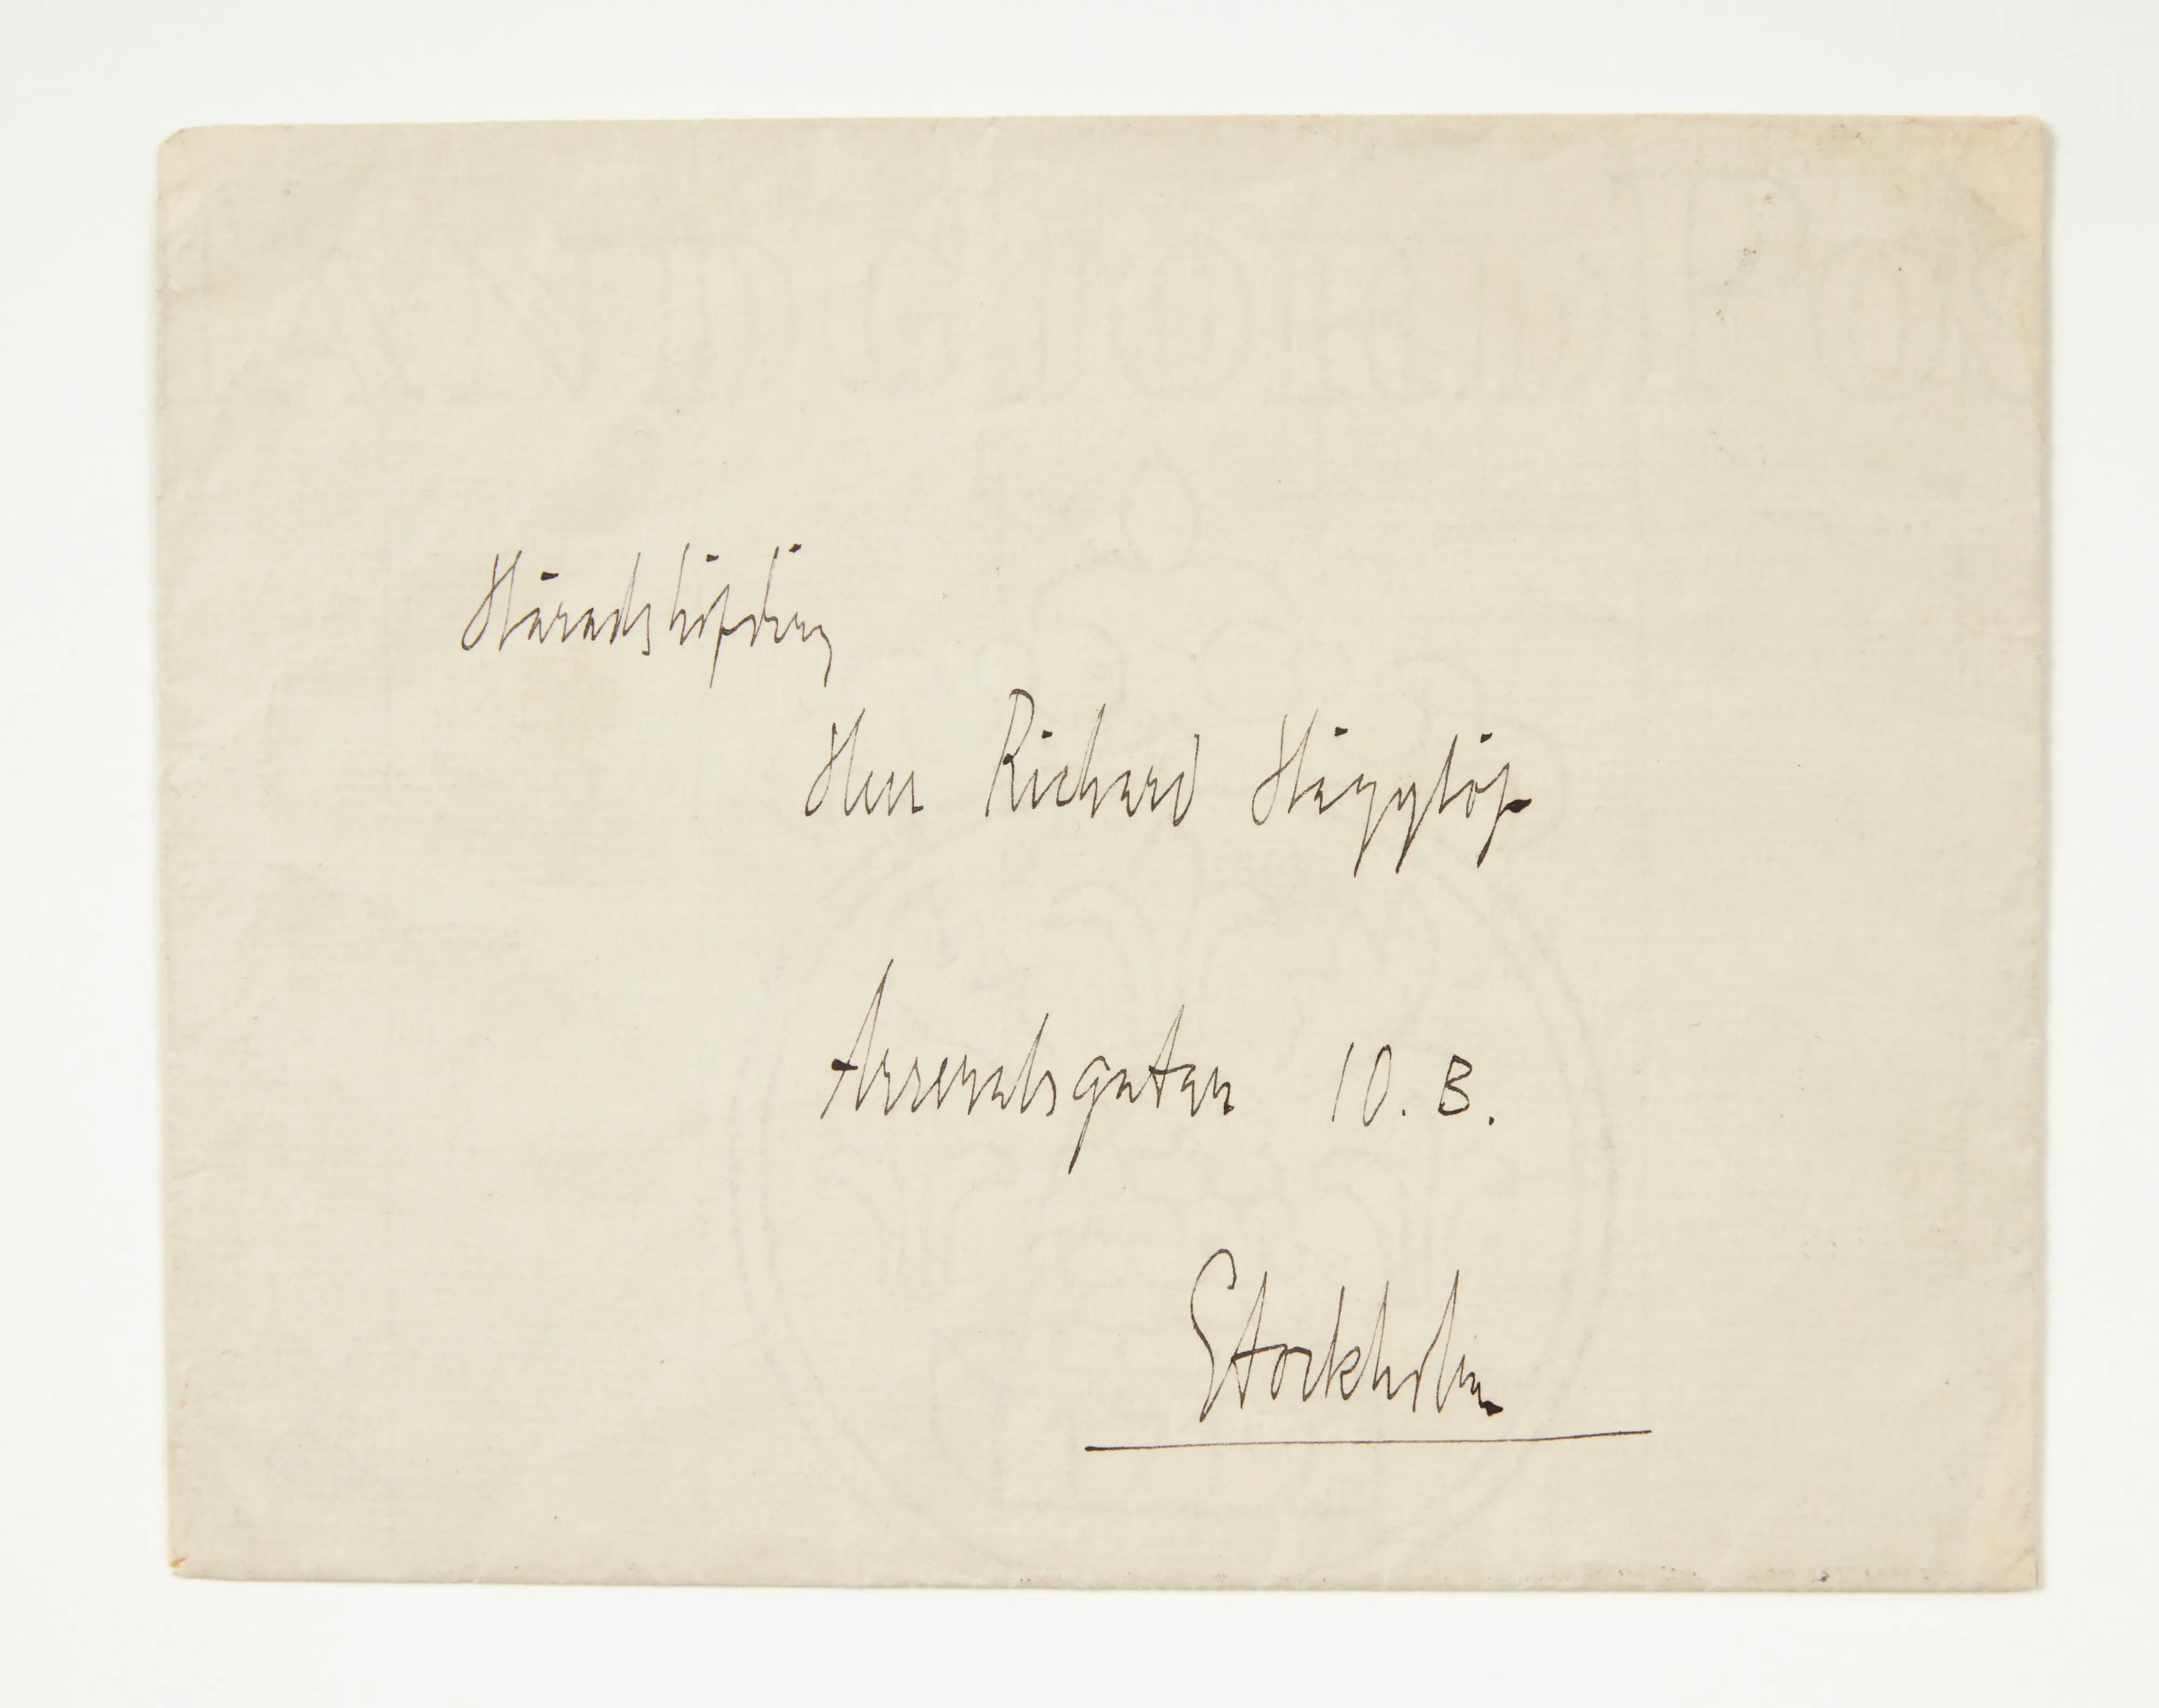 Häradshöfding
Herr Richard Hägglöf
Arsenalsgatan 10. B.
Stockholm